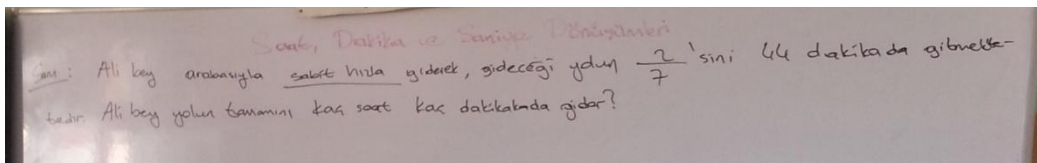 Saat, Dakika ve Saniye Dönüşümleri
Soru: Ali bey arabasıyla sabit hızla giderek, gideceği yolun 2/7 'sini 44 dakikada gitmekte-
tedir. Ali bey yolun tamamını kaç saat kaç dakikakada gider?